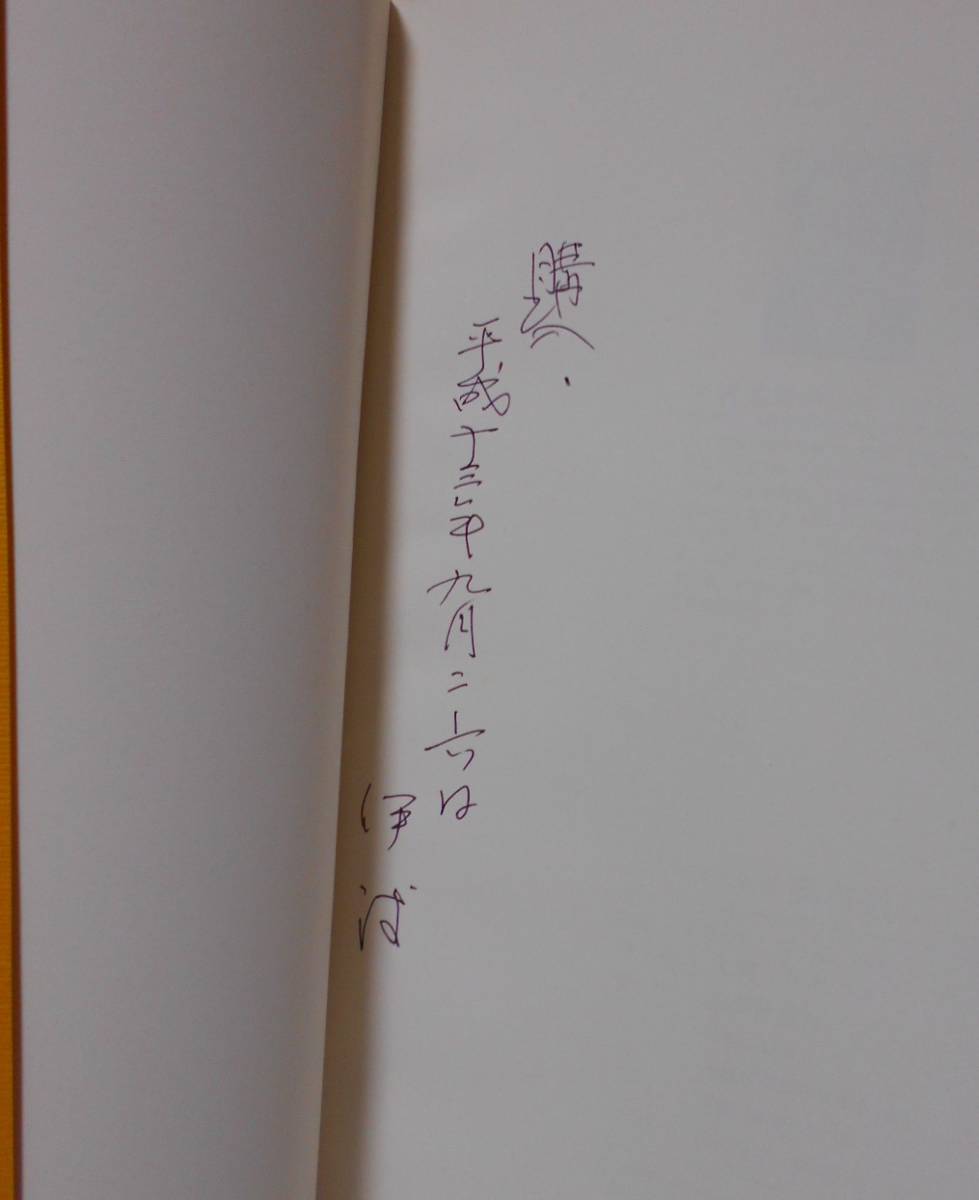 購入.
平成十三年九月二十六日
伊波